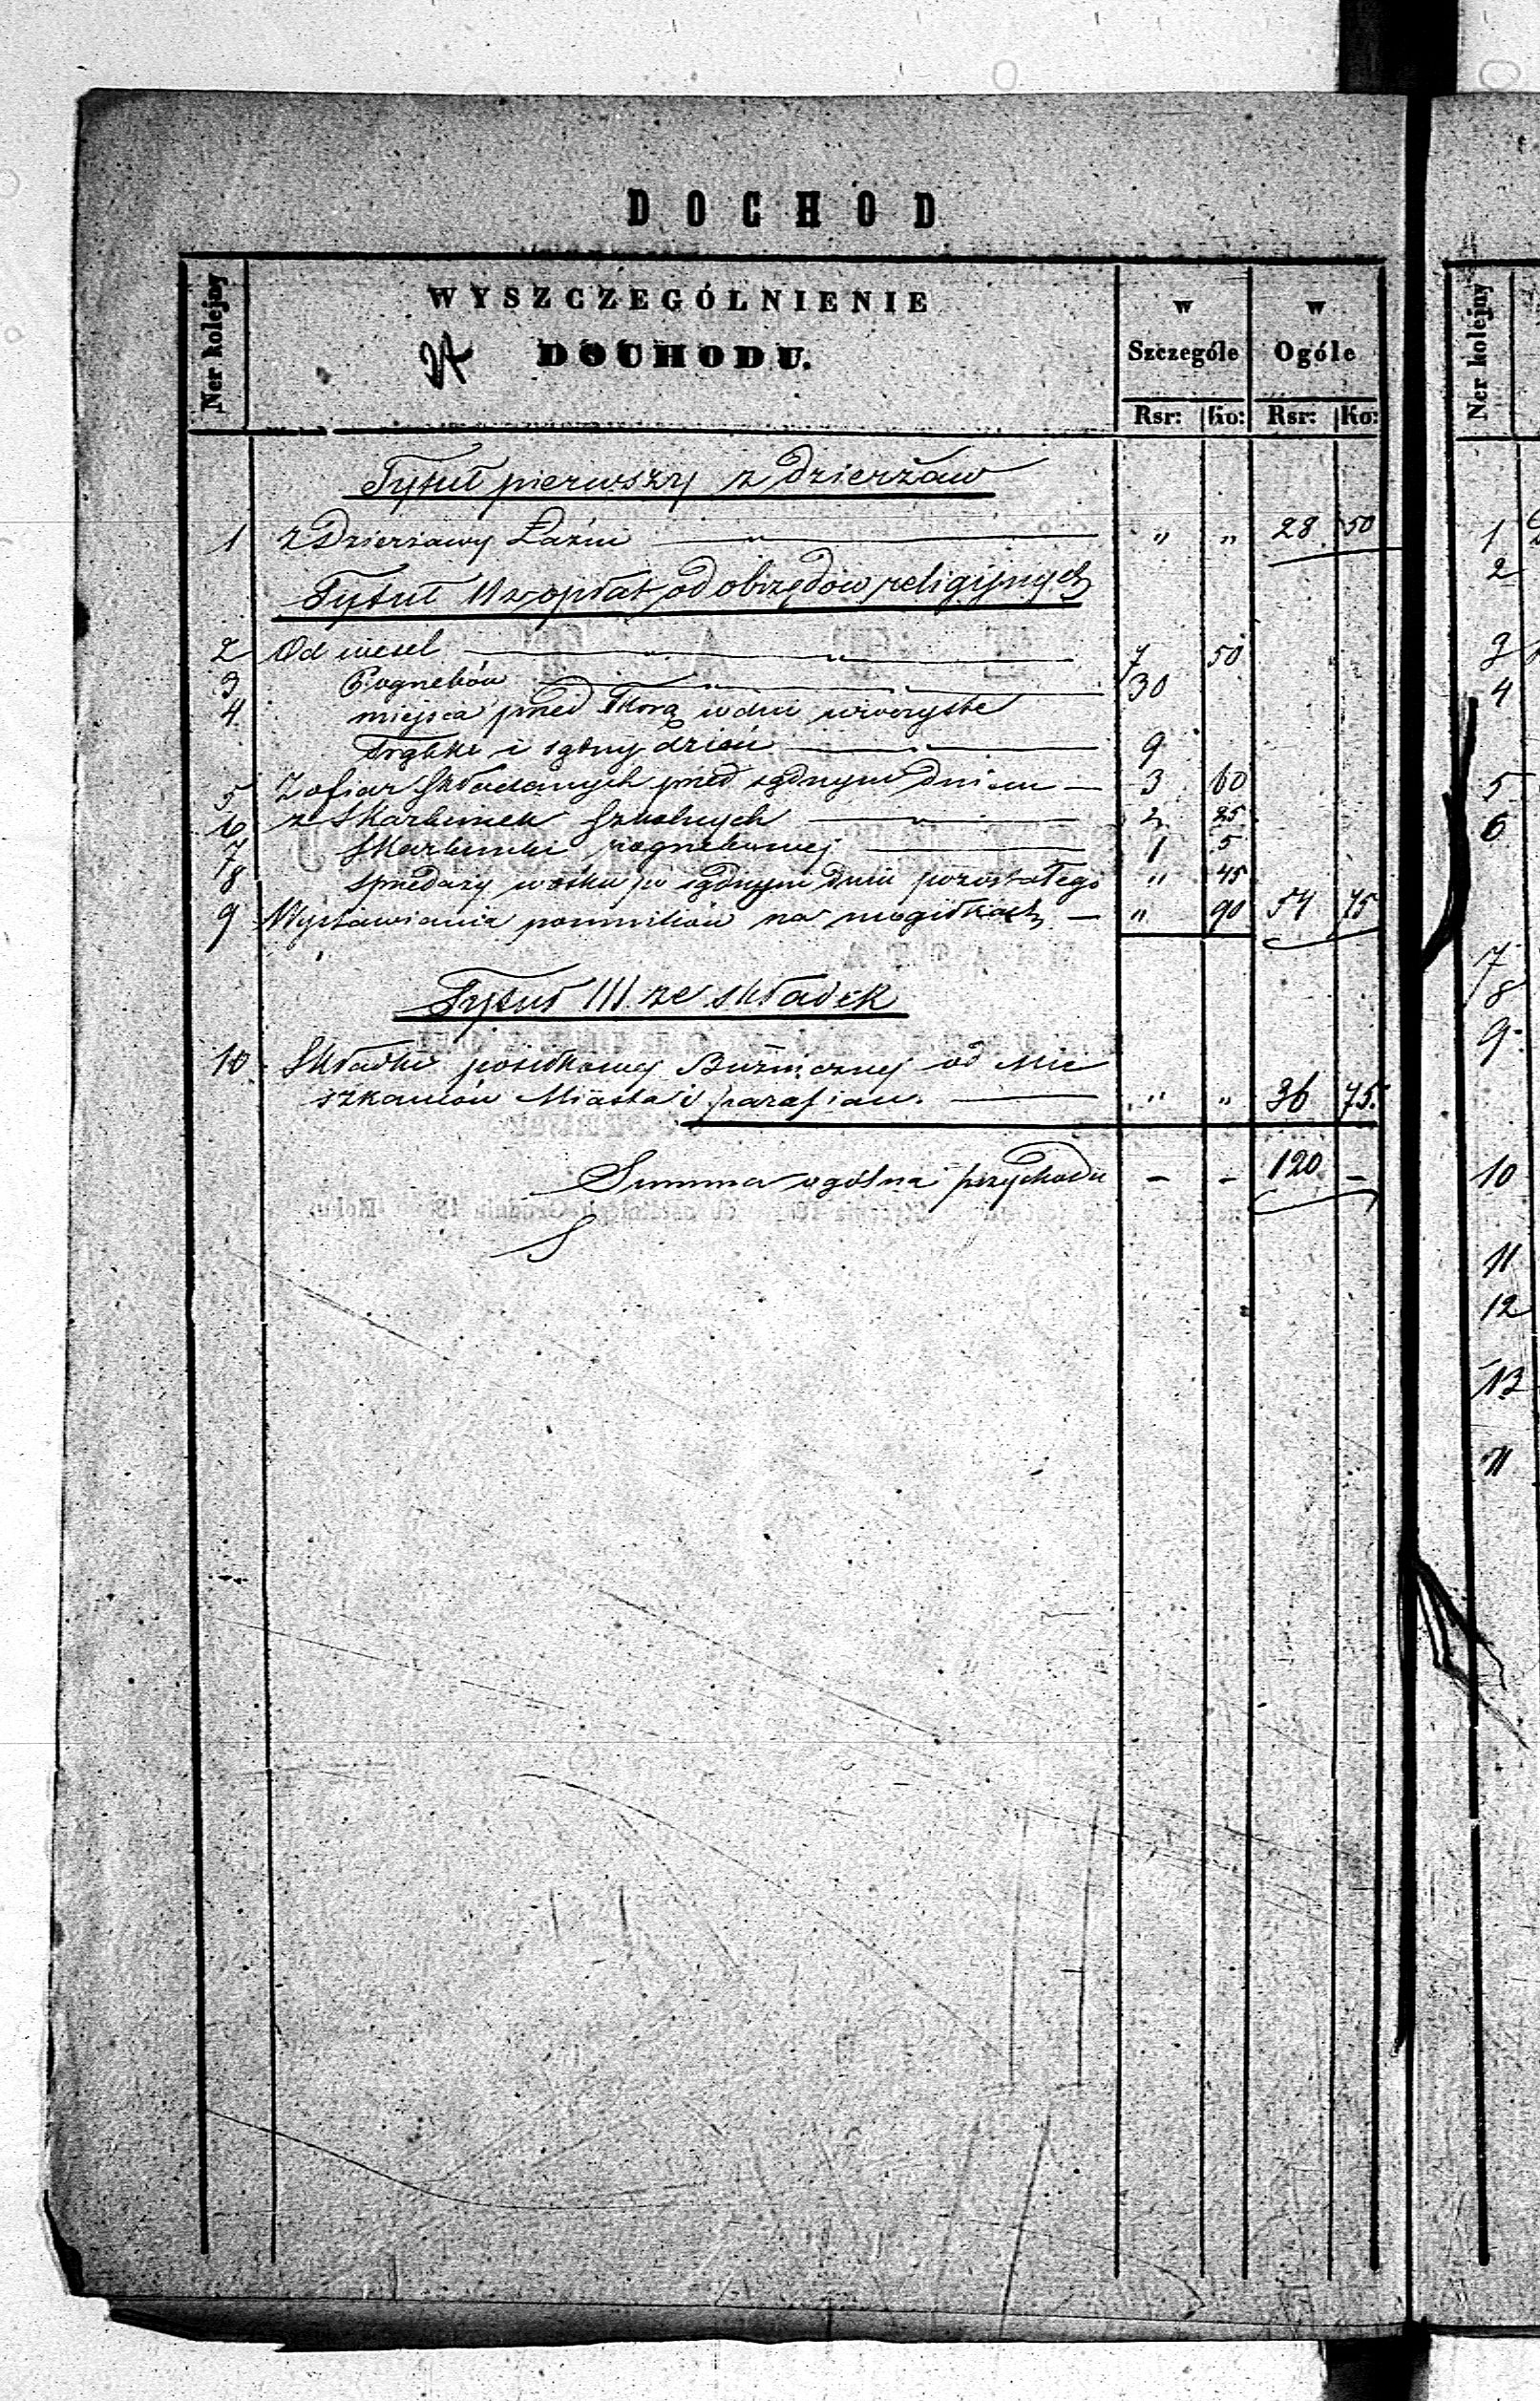 DOCHOD
Ner kolejny
WYSZCZEGÓLNIENIE
DOCHODU.
w Szczególe
w Ogóle
Rsr: Ko: Rsr: Ko:
Tytuł pierwszy z Dzierżaw
1 z Dzierżawy Łaźni " " 28 50
Tytuł II z opłat od obrzędów religijnych
2 Od wesel 7 50
3 Pogrzebów 30
4 miejsca przed Torą w dni uroczyste
Trąbki i sądny dzień 9
5 Z ofiar składanych przed sądnym Dniem 3 60
6 z Skarbonek Szkolnych 2 25
7 Skarbonki pogrzebowej 1 5
8 sprzedaży wosku po sądnym dniu pozostałego " 45
9 Wystawiania pomników na mogiłkach " 90 54 75
Tytuł III ze składek
10 Składki Bużniczney od Mie
szkańców Miasta i parafian. " " 36 75.
Summa ogólna przychodu - - 120 -
Ner kolejny
1
2
3
4
5
6
7
8
9
10
11
12
13